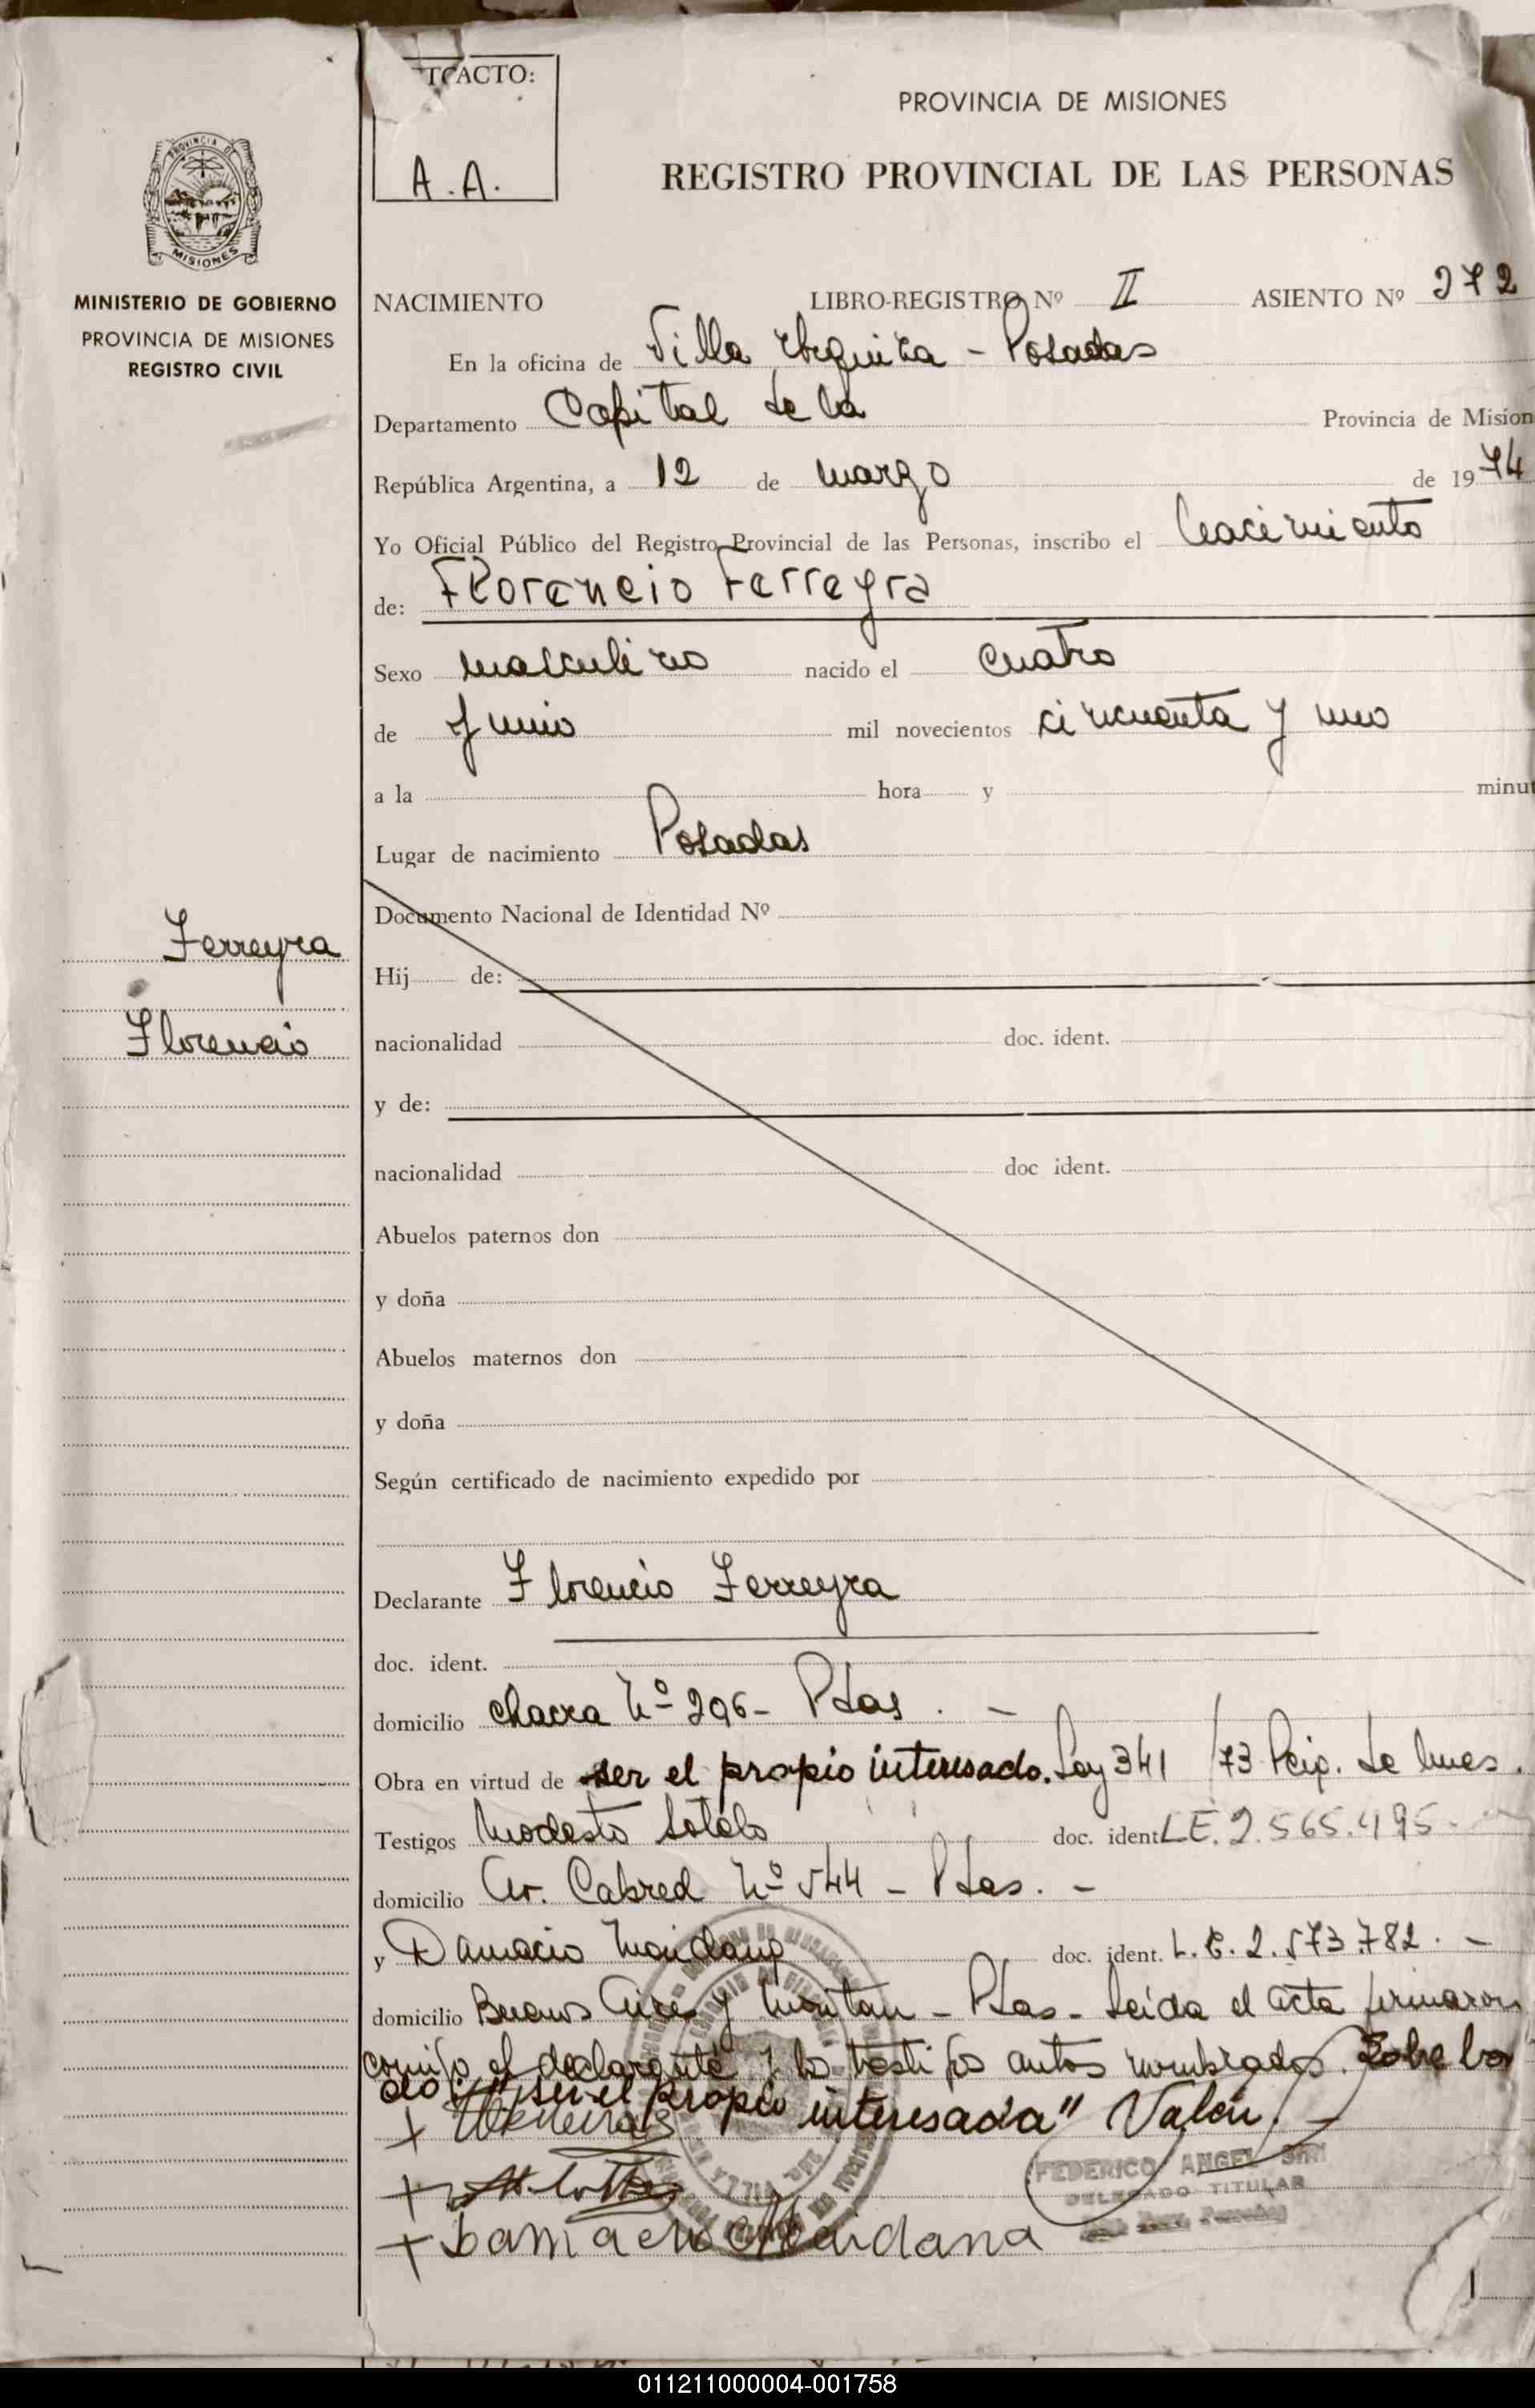 TRACTO:
A.A.
PROVINCIA DE MISIONES
REGISTRO PROVINCIAL DE LAS PERSONAS
PROVINCIA DE
MISIONES
MINISTERIO DE GOBIERNO
PROVINCIA DE MISIONES
REGISTRO CIVIL
NACIMIENTO LIBRO-REGISTRO Nº II ASIENTO Nº 272
En la oficina de Villa Urquiza - Posadas
Departamento Capital de la Provincia de Mision
República Argentina, a 12 de marzo de 1974
Yo Oficial Público del Registro Provincial de las Personas, inscribo el Nacimiento
de: Florencio Ferreyra
Sexo masculino nacido el cuatro
de Junio mil novecientos cincuenta y uno
a la hora y minut
Lugar de nacimiento Posadas
Documento Nacional de Identidad Nº
Ferreyra
Hij de:
Florencio
nacionalidad doc. ident.
y de:
nacionalidad doc ident.
Abuelos paternos don
y doña
Abuelos maternos don
y doña
Según certificado de nacimiento expedido por
Declarante Florencio Ferreyra
doc. ident.
domicilio chacra Nº 296 - Pdas. -
Obra en virtud de ser el propio interesado. Ley 341/73
Testigos Modesto Sotelo doc. ident L.E. 2.565.495-
domicilio Av. Cabred Nº 544 - Pdas. -
y Damacio Maidana doc. ident. L.E. 2.573.782. -
domicilio Buenos Aires y - Pdas - Leída el acta firmaron
conmigo el declarante y los testigos antes nombrados. Sobre bor
do: "ser el propio interesado" Valen. -
+
+
+ Damacio Maidana
FEDERICO ANGEL
DELEGADO TITULAR
011211000004-001758